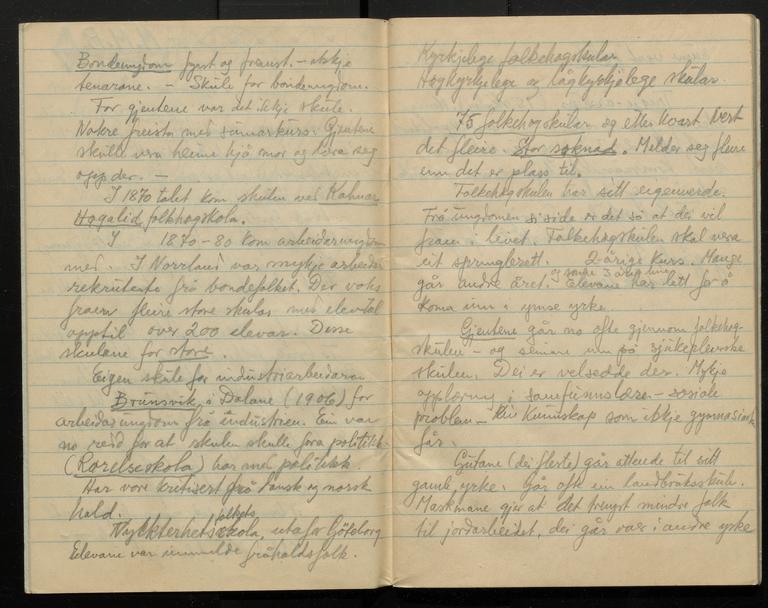 Bondeungdom fyrst og fremst. – ikkje
tenarane. – Skule for bondeungdom.
For gjentene var det ikkje skule.
Nokre freista med sumarkurs. Gjentene
skulle vera heime hjå mor og læra seg
opp der. –
I 1870 talet kom skulen ved Kalmar
Högalid folkhögskola.
I 1870-80 kom arbeidarungdom
med. I Norrland var mykje arbeidar
rekrutente frå bondefolket. Der voks
fraem fleire store skular med elevtal
opptil over 200 elevar. Desse
skulane for store.
Eigen skule for industriarbeidarar
Brunsvik i Dalane (1906) for
arbeidarungdom frå industrien. Ein var
no redd for at skulen skulle föra politikk
(Rörelseskola) har med politikk.
Har vore kritisert frå dansk og norsk
hald.
Nykterhetsfolkets skola, utafor Göteborg
Elevane var innmelde fråhaldsfolk.
Kyrkjelege folkehøgskular
Høgkyrkjelege og lågkyrkjelege skular.
75 folkehøgskular og etter kvart vert
det fleire. Stor søknad. Melder seg fleire
enn det er plass til.
Folkehøgskulen har sitt eigenverde.
Frå ungdomen si side er det så at dei vil
fram i livet. Folkehøgskulen skal vera
eit springbrett. 2 årige kurs. Mange
går andre året. og sume 3 årig kurs Elevane har lett for å
koma inn i ymse yrke.
Gjentene går no ofte gjennom folkehøg-
skulen – og seinare inn på sjukepleiarske
skulen. Dei er velsedde der. Mykje
opplæring i samfunnslære – sosiale
problem – Ein kunnskap som ikkje gymnasiast
får.
Gutane (dei fleste) går attende til sitt
gamle yrke. Går ofte ein landbruksskule.
Maskinane gjer at det trengst mindre folk
til jordarbeidet, dei går over i andre yrke